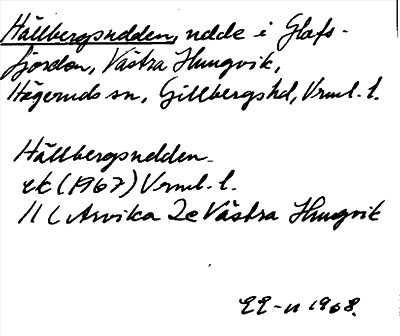 Hällbergsudden, udde i Glafs-
fjorden, Västra Hungvik,
Högeruds sn, Gillbergshd, Vrml. l.
Hällbergsudden
ek (1967) Vrml. l.
11 C Arvika 2e Västra Hungvik
1968.